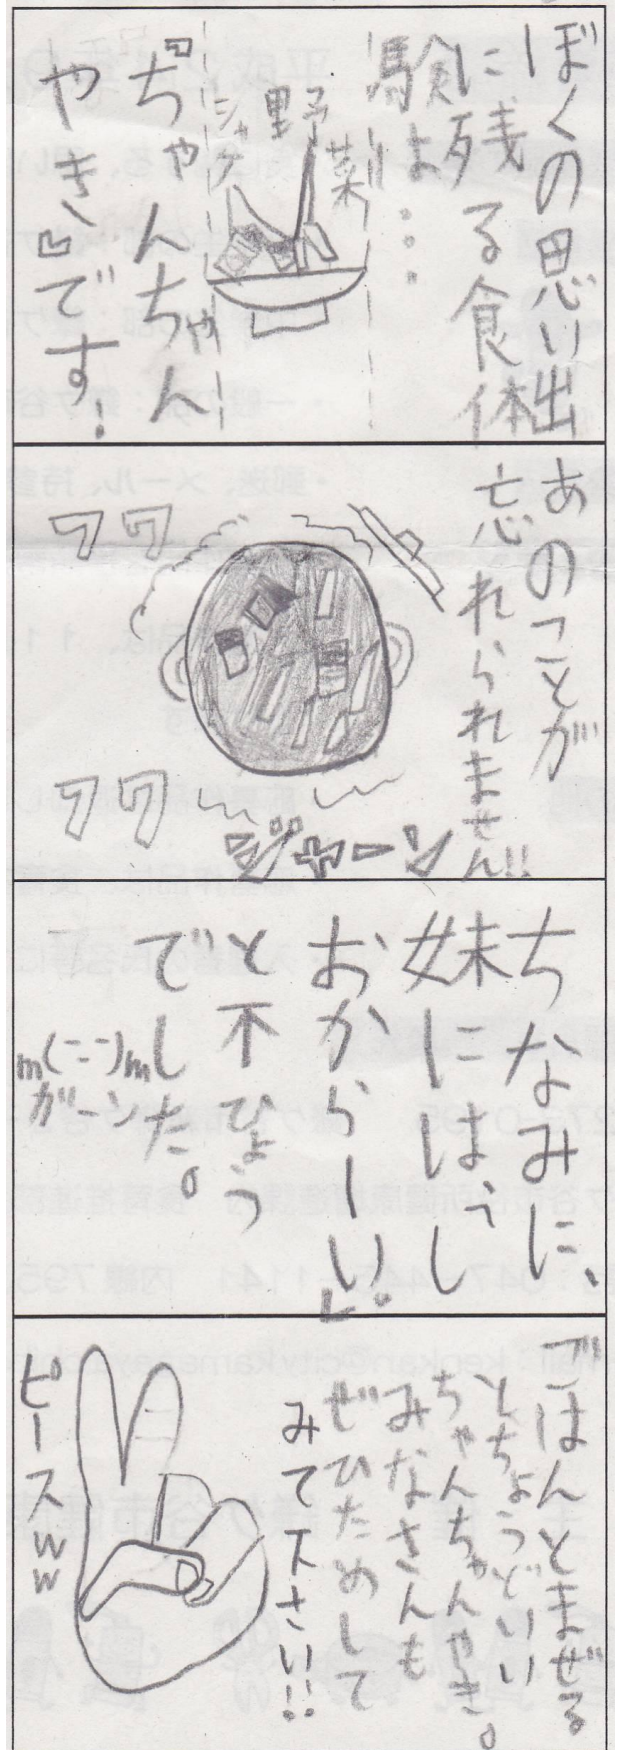 ぼくの思い出
に残る食体
験は…
野菜
シャケ
『ちゃんちゃん
やき』です!
あのことが
忘れられません!!
フワ
フワ
ジャーン
ちなみに、
妹には「し
おからーい!」
と不ひょう
でした。
m(--)m
ガーン
ごはんとまぜる
とちょうどいい
ちゃんちゃんやき。
みなさんも
ぜひためして
みて下さい!!
ピースww